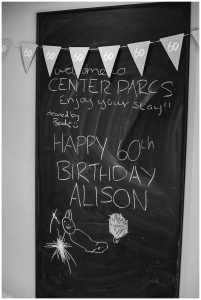 60 60 60 60 60
welcome to
CENTER PARCS
Enjoy your stay!!
HAPPY 60th
BIRTHDAY
ALISON